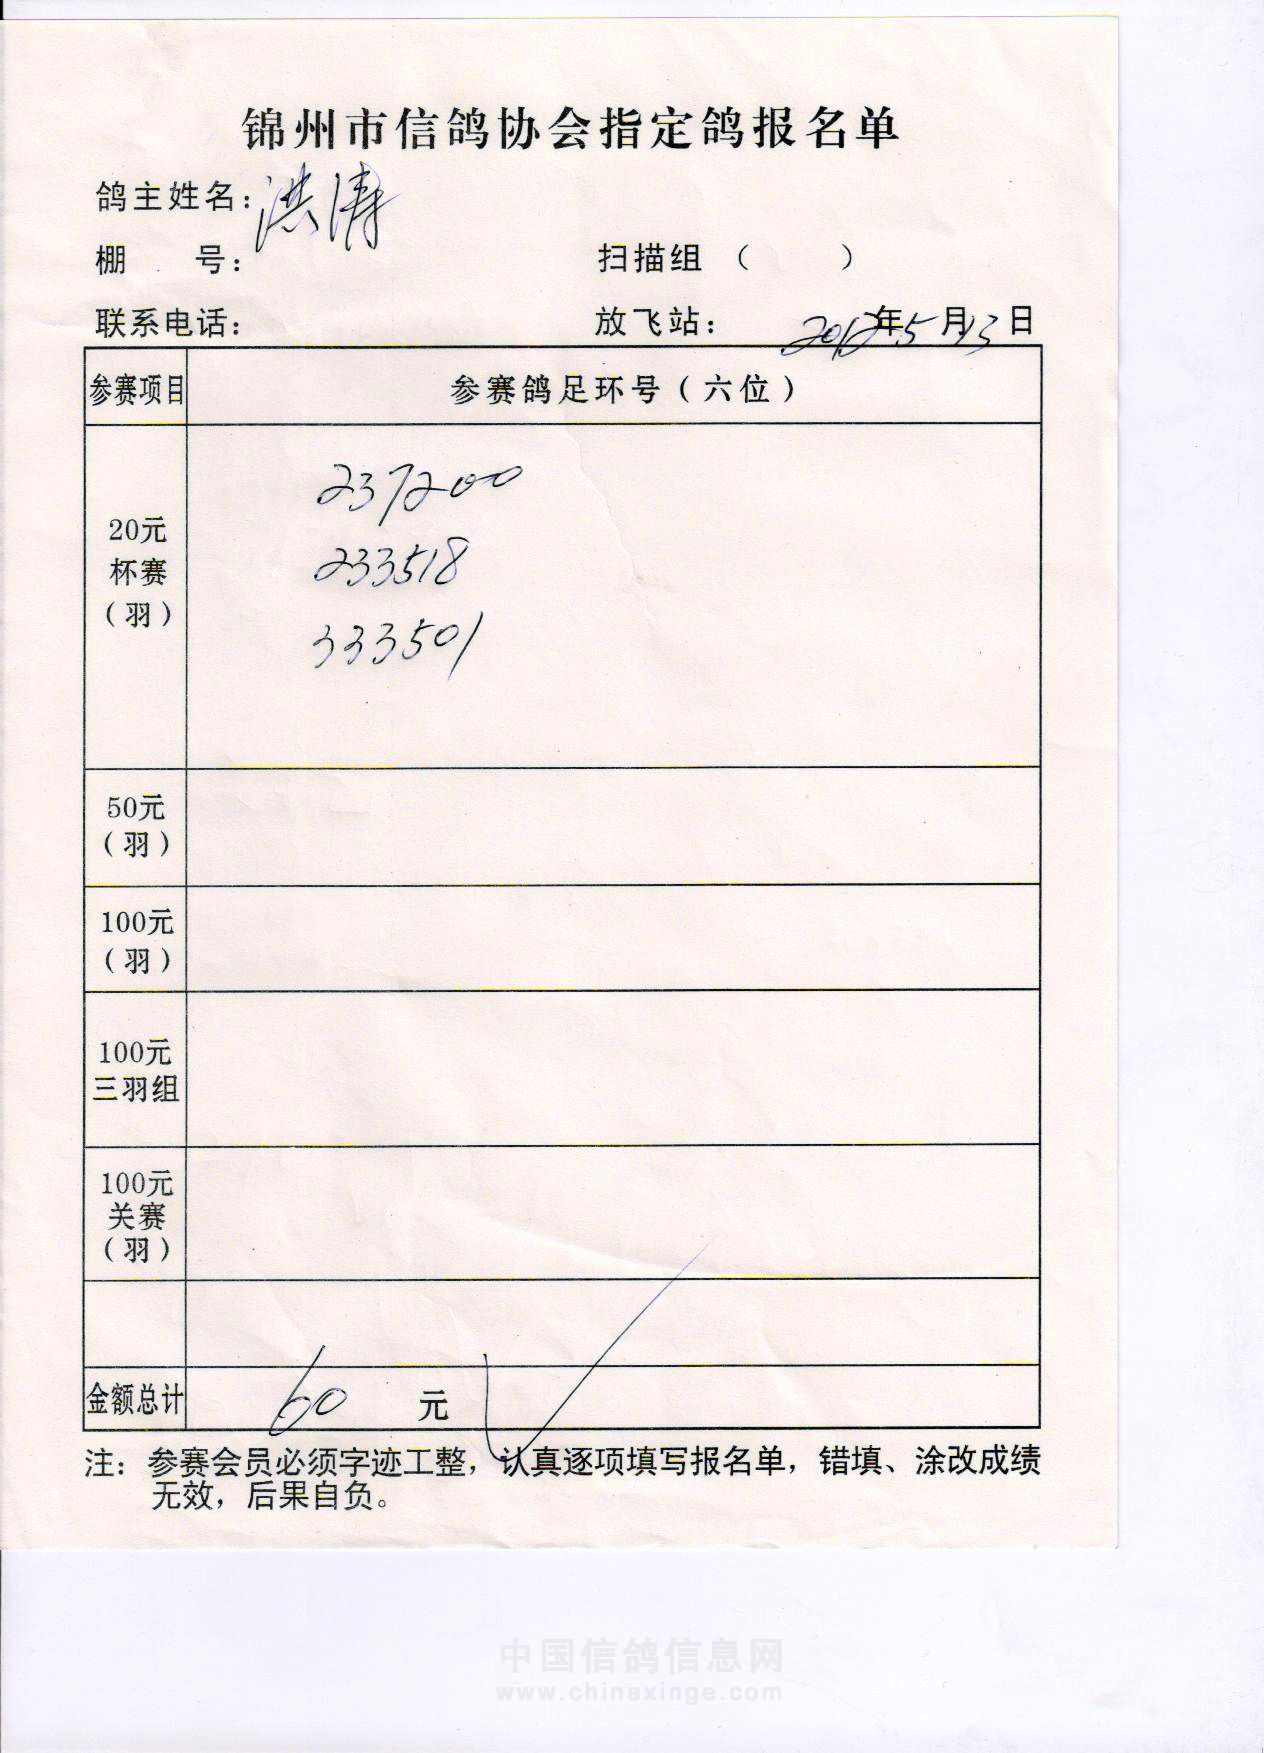 锦州市信鸽协会指定鸽报名单
鸽主姓名：洪涛
棚 号：
扫描组（ ）
联系电话：
放飞站：
2012年5月13日
参赛项目
参赛鸽足环号（六位）
20元
杯赛
（羽）
237200
233518
333501
50元
（羽）
100元
（羽）
100元
三羽组
100元
关赛
（羽）
金额总计
60 元
注：参赛会员必须字迹工整，认真逐项填写报名单，错填、涂改成绩
无效，后果自负。
中国信鸽信息网
www.chinaxinge.com